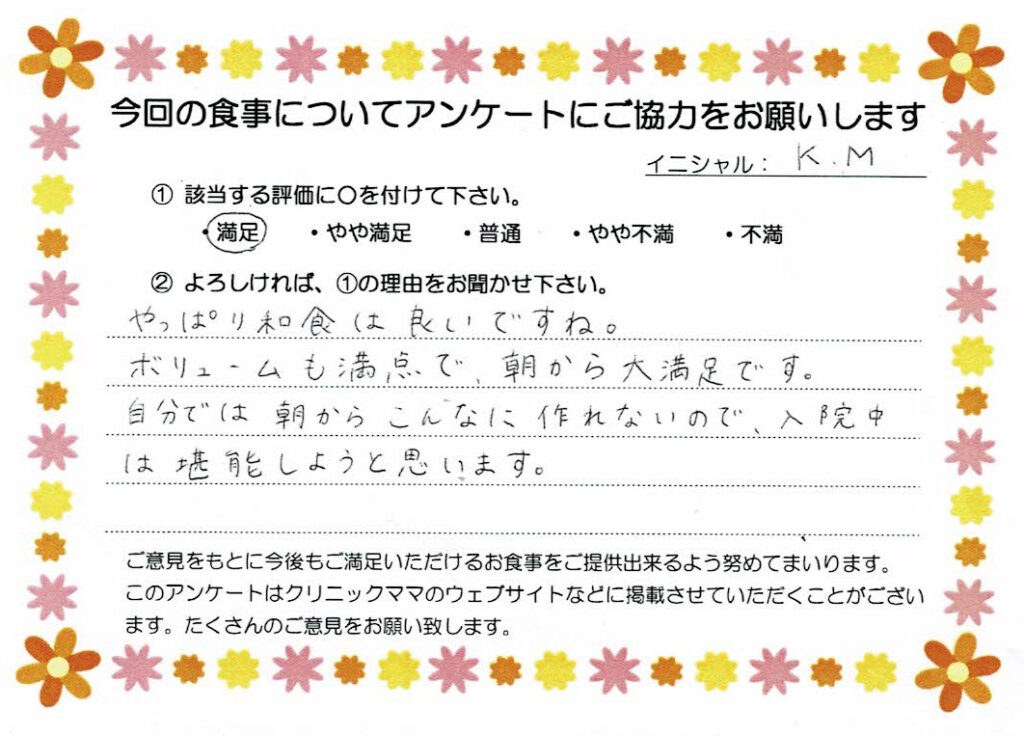 今回の食事についてアンケートにご協力をお願いします
イニシャル： K.M
① 該当する評価に〇を付けて下さい。
・満足　・やや満足　・普通　・やや不満　・不満
② よろしければ、①の理由をお聞かせ下さい。
やっぱり和食は良いですね。
ボリュームも満点で、朝から大満足です。
自分では朝からこんなに作れないので、入院中
は堪能しようと思います。
ご意見をもとに今後もご満足いただけるお食事をご提供出来るよう努めてまいります。
このアンケートはクリニックママのウェブサイトなどに掲載させていただくことがござい
ます。たくさんのご意見をお願い致します。